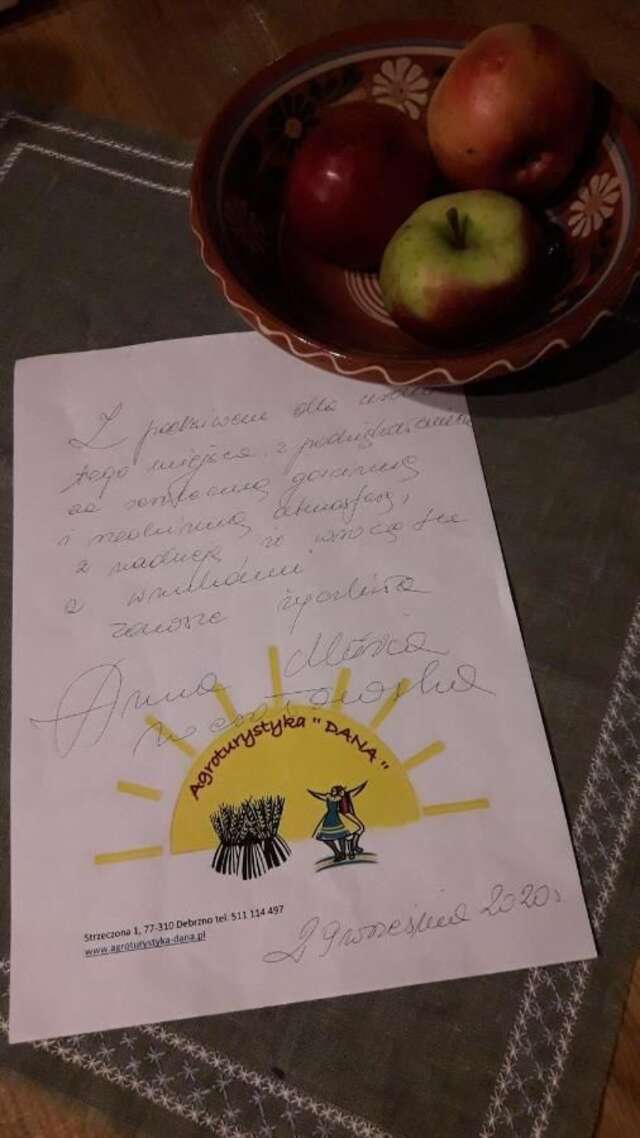 Z podziwem dla
tego miejsca, z podziękowaniem
za gościnę
i atmosferę,
z nadzieją, że wrócę tu
z wnukami
zawsze życzliwa
Anna Maria
Agroturystyka "DANA"
Strzeczona 1, 77-310 Debrzno tel. 511 114 497
www.agroturystyka-dana.pl
29 września 2020r